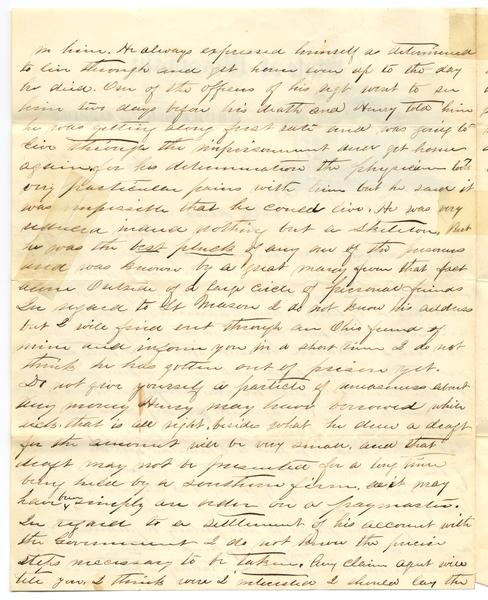 in him. He always expressed himself as determined
to live through and get home even up to the day
he died. One of the officers of his regt went to see
him two days before his death and Henry told him
he was getting along first rate and was going to
live through the imprisonment and get home
again, for his determination the physician took
very particular pains with him but he said it
was impossible that he could live. He was very
reduced nothing but a skeleton, But
he was the best pluck of any one of the prisoners
and was known by a great many from that fact
alone outside of a large circle of personal friends
In regard to Lt Mason I do not know his address
but I will find out through an Ohio friend of
mine and inform you in a short time I do not
think he has gotten out of prison yet.
Do not give yourself a particle of uneasiness about
any money Henry may have borrowed while
sick. that is all right. besides what he drew a draft
for the amount will be very small, and that
draft may not be presented for a long time
being held by a southern firm. as it may
have been simply an order on a paymaster.
In regard to a settlement of his account with
the Government I do not know the precise
steps necessary to be taken. Any claim agent will
tell you. I think were I interested I should lay the